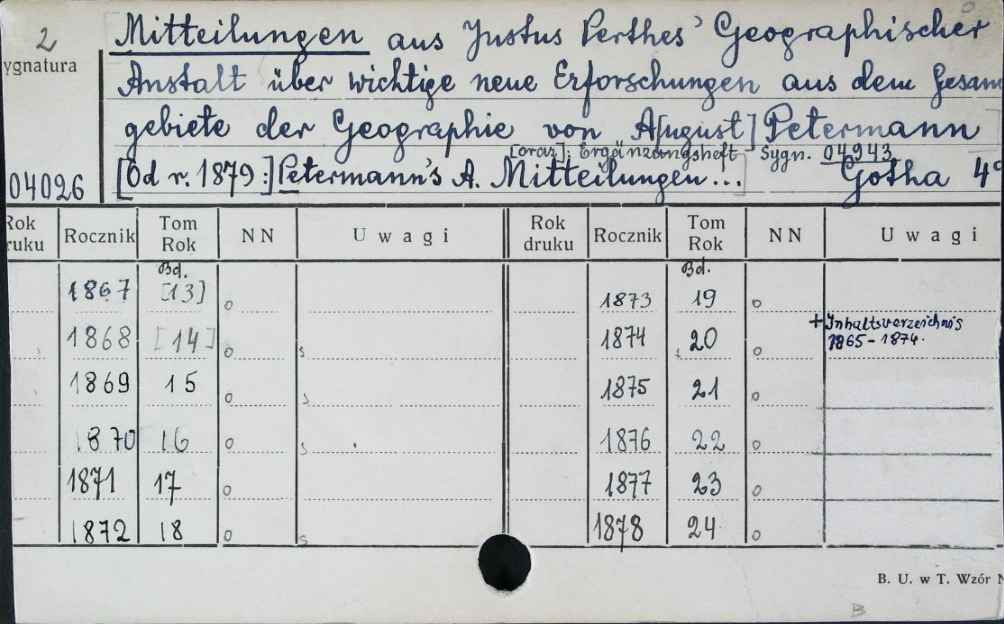 2
ygnatura
04026
Mitteilungen aus Justus Perthes' Geographischer
Anstalt über wichtige neue Erforschungen aus dem Gesam
gebiete der Geographie von A[ugust] Petermann
[oraz]: Ergänzungsheft Sygn. 04943
[Od r. 1879:] Petermann's A. Mitteilungen...] Gotha 4°
Rok druku Rocznik Tom Rok NN Uwagi Rok druku Rocznik Tom Rok NN Uwagi
Bd. Bd.
1867 [13] o 1873 19 o
1868 [14] o 1874 20 o +Inhaltsverzeichnis 1865-1874.
1869 15 o 1875 21 o
1870 16 o 1876 22 o
1871 17 o 1877 23 o
1872 18 o 1878 24 o
B. U. w T. Wzór N
B